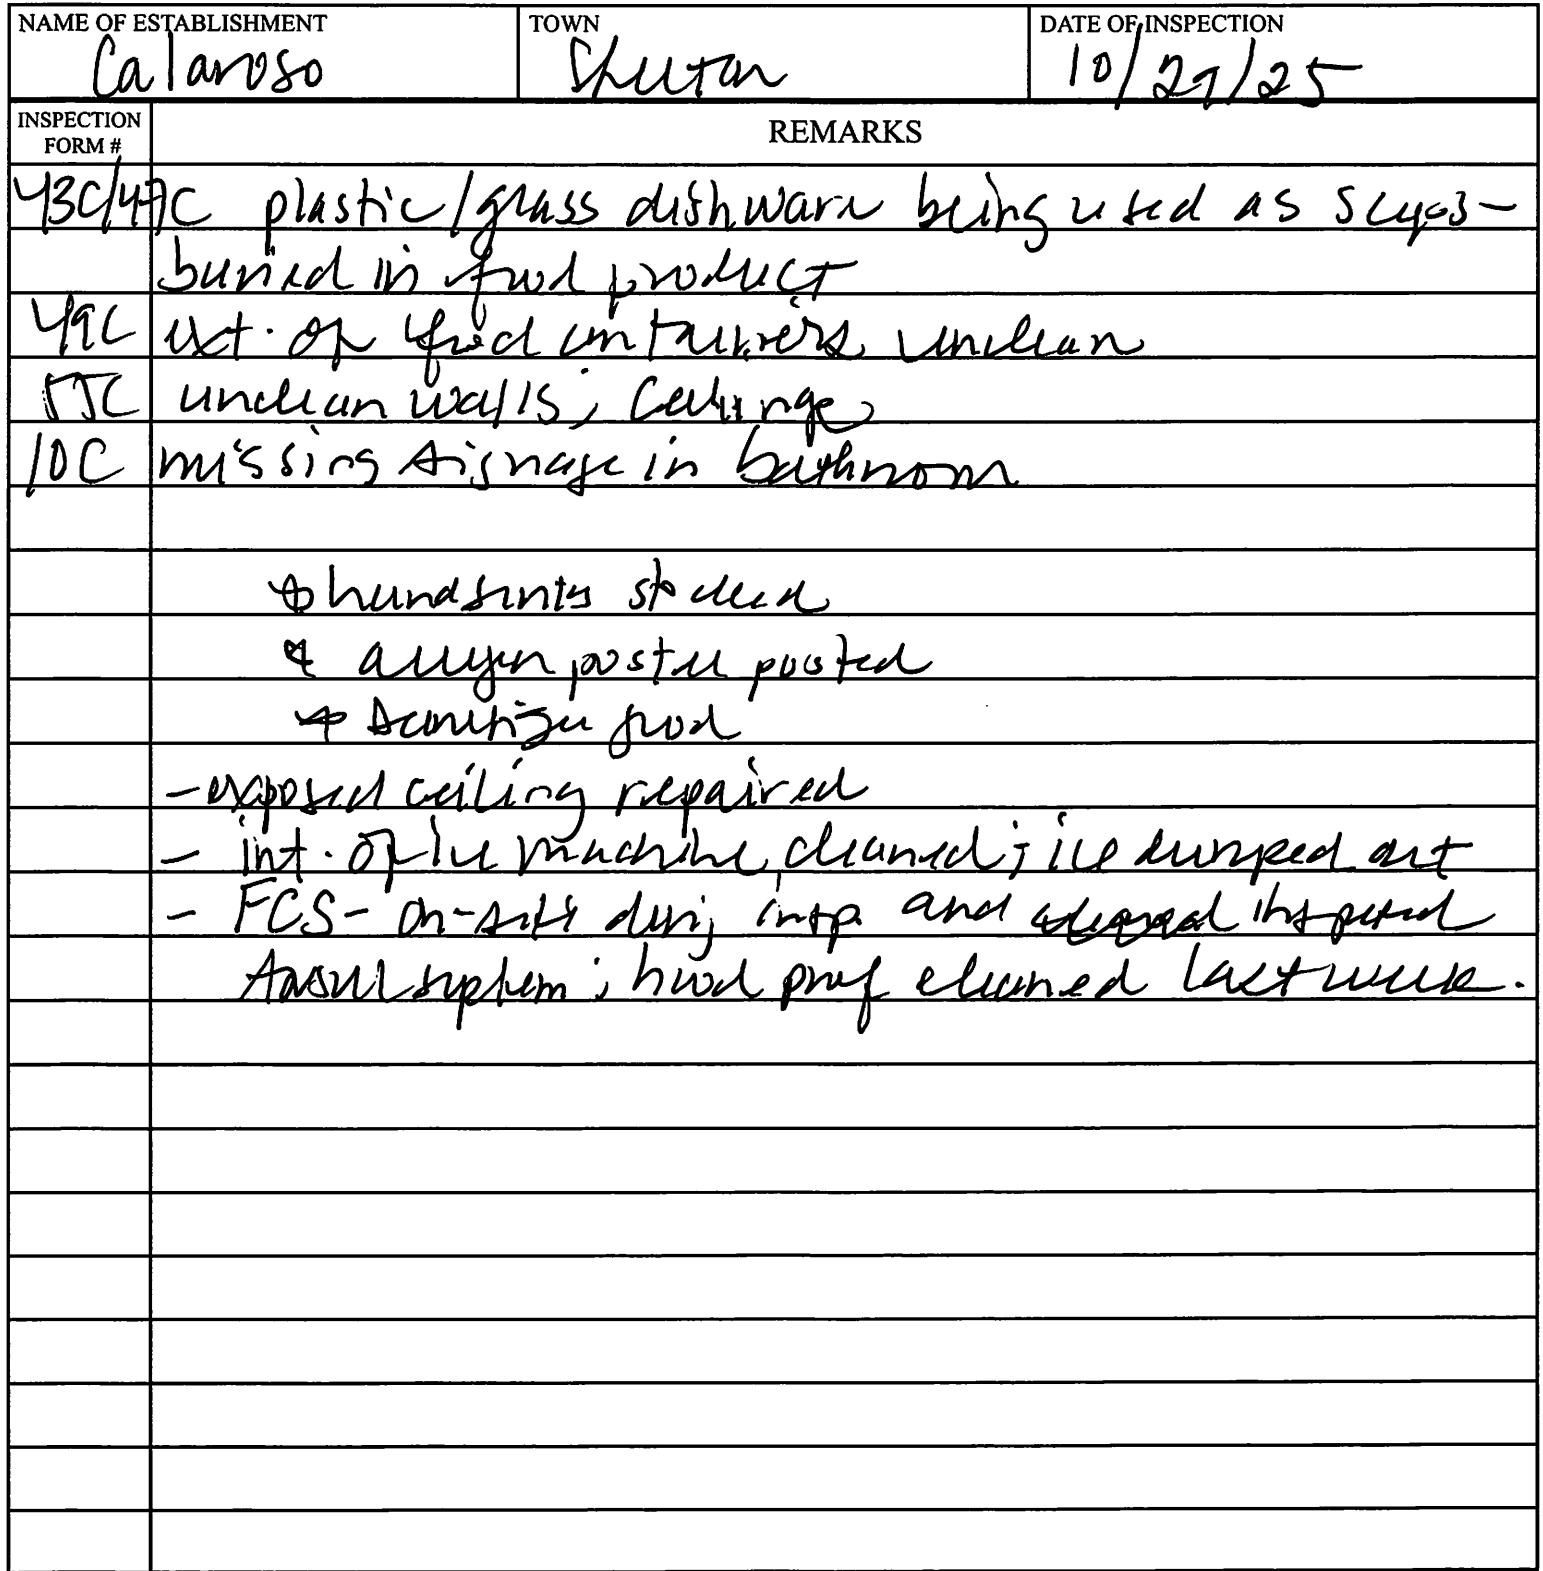 NAME OF ESTABLISHMENT TOWN DATE OF INSPECTION
Calaroso Shelton 10/27/25
INSPECTION FORM # REMARKS
43C/47C plastic/glass dishware being used as scoops -
buried in food product
49C ext. of food containers unclean
55C unclean walls, ceilings
10C missing signage in bathroom
* handsinks stocked
* allergen poster posted
* sanitizer good
- exposed ceiling repaired
- int. of ice machine cleaned; ice dumped out
- FCS - on-site during insp. and inspected
Ansul system; hood prof cleaned last week.